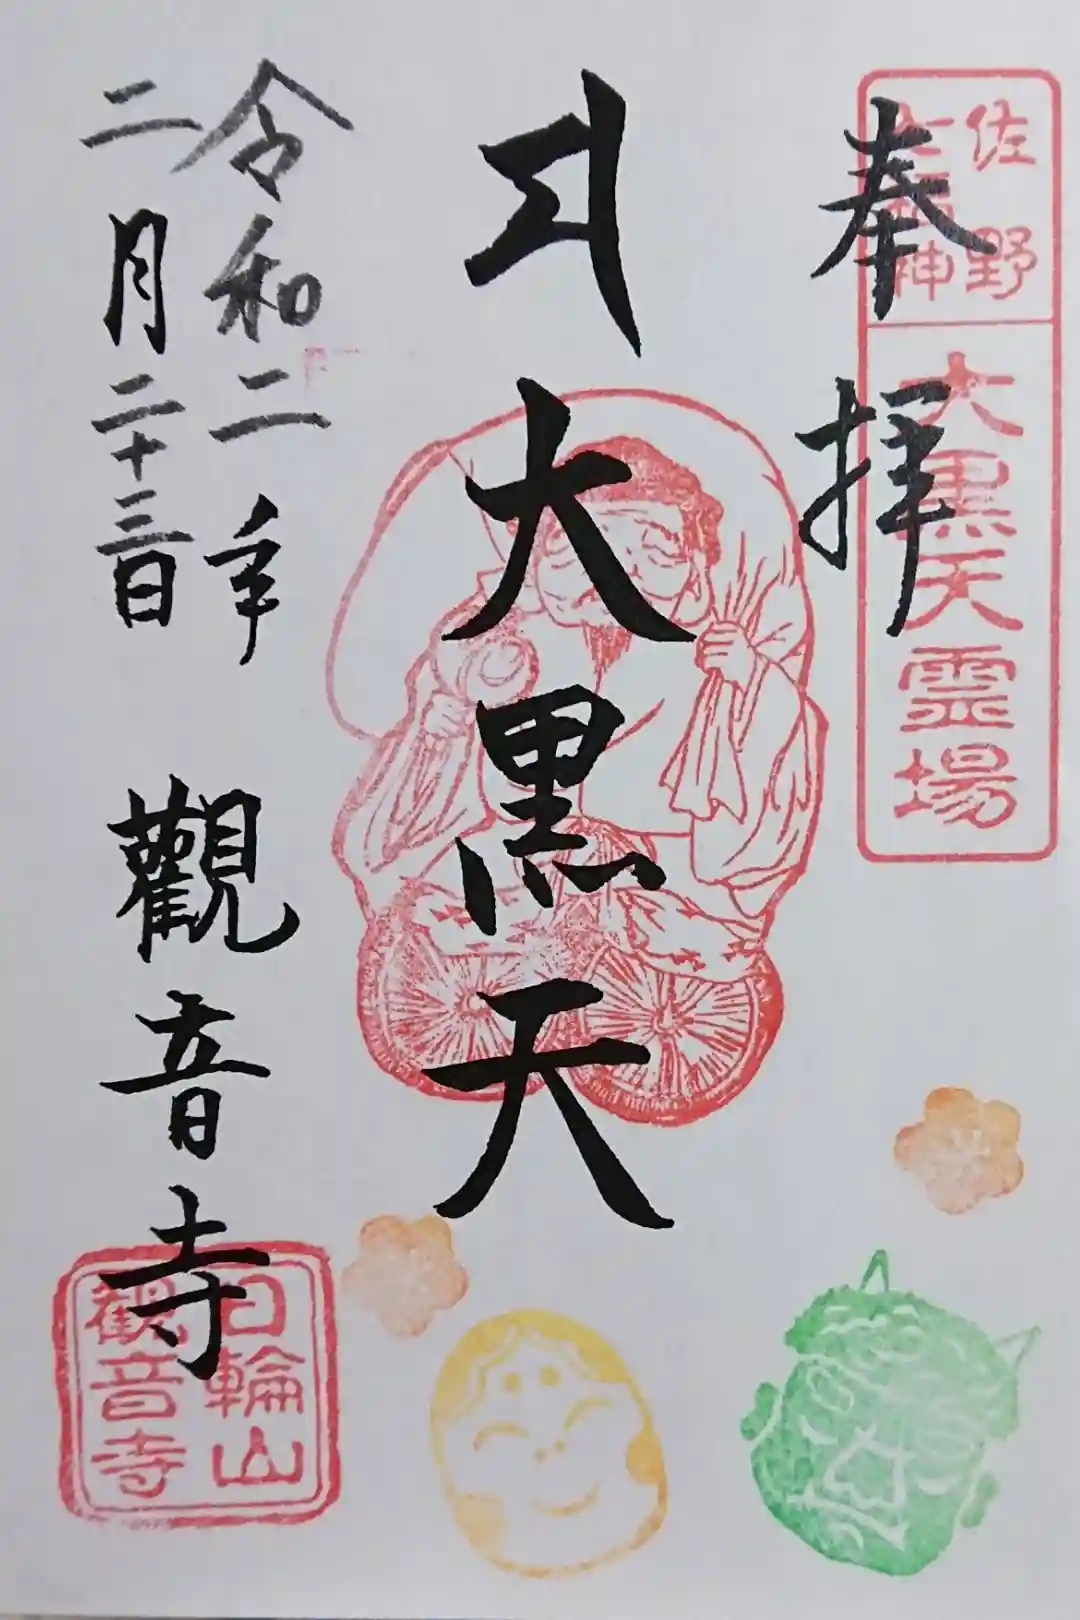 奉拝
佐野
七福神
大黒天霊場
大黒天
令和二年
二月二十三日
觀音寺
日輪山
観音寺